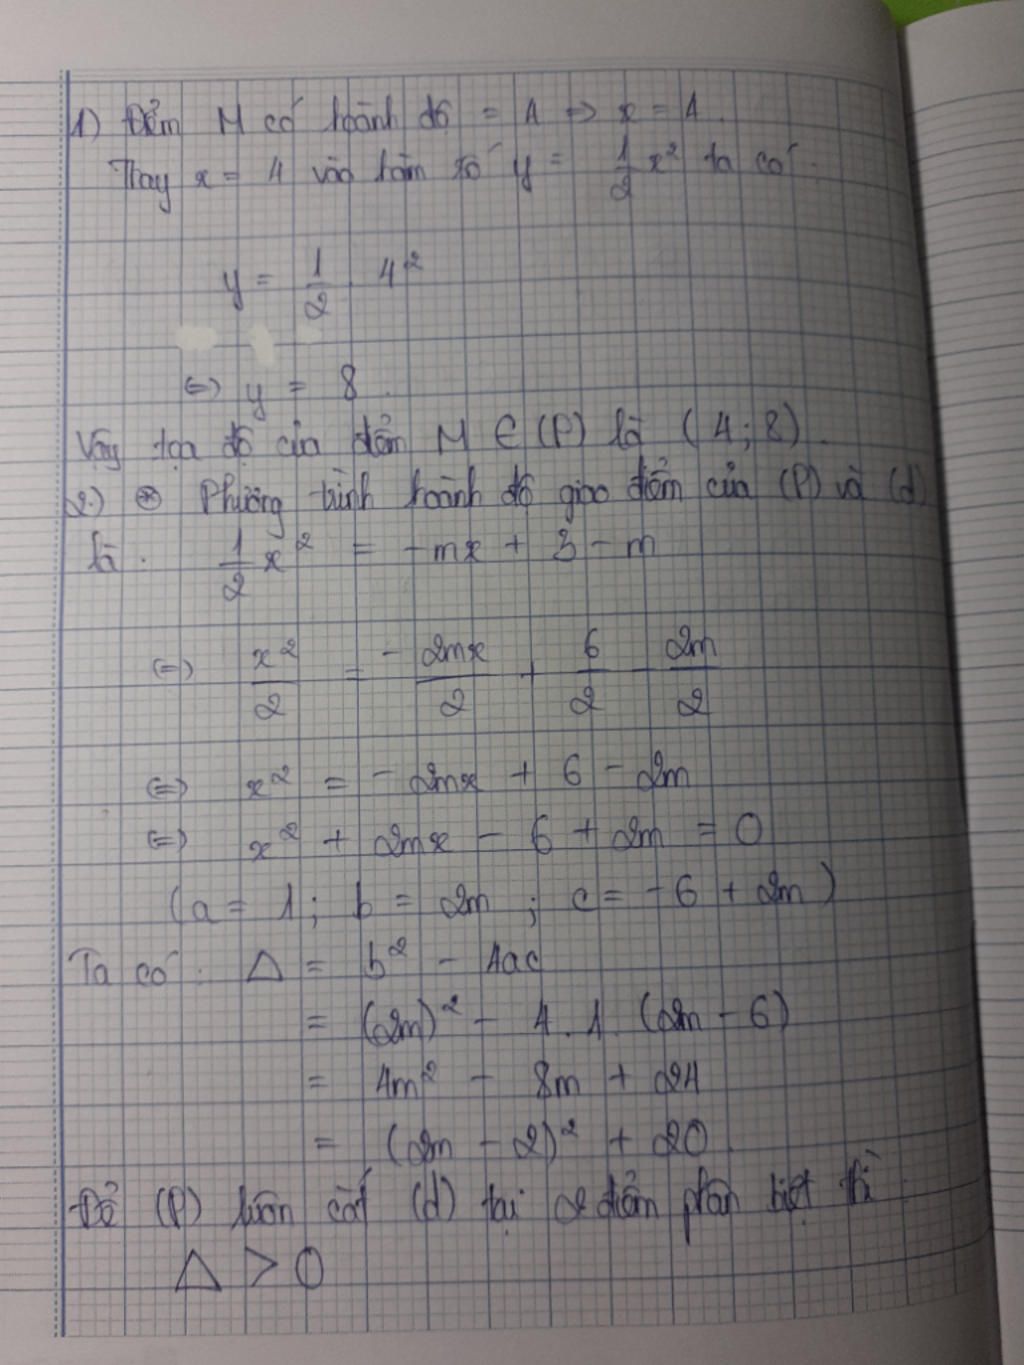 1) Điểm M có hoành độ = 4 => x = 4.
Thay x = 4 vào hàm số y = 1/2 x² ta có:
y = 1/2 . 4²
<=> y = 8.
Vậy tọa độ của điểm M ∈ (P) là (4; 8).
2.) ⊛ Phương trình hoành độ giao điểm của (P) và (d)
là: 1/2 x² = -mx + 3 - m
<=> x²/2 = - 2mx/2 + 6/2 - 2m/2
<=> x² = - 2mx + 6 - 2m
<=> x² + 2mx - 6 + 2m = 0
(a = 1; b = 2m ; c = -6 + 2m)
Ta có: Δ = b² - 4ac
= (2m)² - 4.1.(2m - 6)
= 4m² - 8m + 24
= (2m - 2)² + 20
Để (P) luôn cắt (d) tại 2 điểm phân biệt thì
Δ > 0